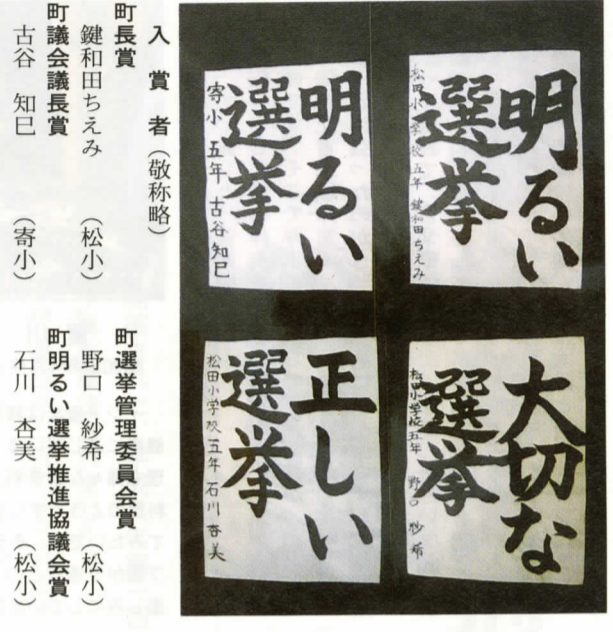 明るい
選挙
松田小学校五年 鍵和田ちえみ
明るい
選挙
寄小 五年 古谷知巳
大切な
選挙
松田小学校五年 野口 紗希
正しい
選挙
松田小学校五年 石川杏美
入賞者(敬称略)
町長賞
鍵和田ちえみ(松小)
町議会議長賞
古谷 知巳(寄小)
町選挙管理委員会賞
野口 紗希(松小)
町明るい選挙推進協議会賞
石川 杏美(松小)